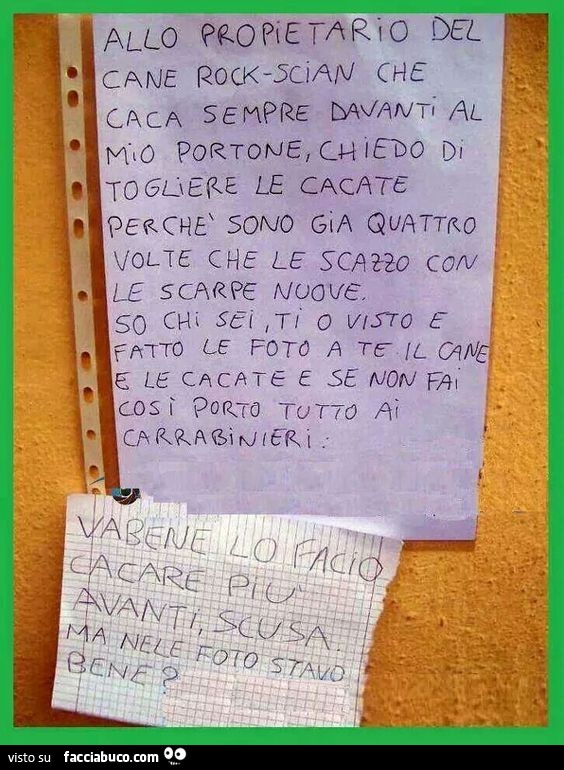 ALLO PROPIETARIO DEL
CANE ROCK-SCIAN CHE
CACA SEMPRE DAVANTI AL
MIO PORTONE, CHIEDO DI
TOGLIERE LE CACATE
PERCHE' SONO GIA QUATTRO
VOLTE CHE LE SCAZZO CON
LE SCARPE NUOVE.
SO CHI SEI, TI O VISTO E
FATTO LE FOTO A TE IL CANE
E LE CACATE E SE NON FAI
COSÌ PORTO TUTTO AI
CARRABINIERI.
VABENE LO FACIO
CACARE PIU'
AVANTI, SCUSA.
MA NELE FOTO STAVO
BENE?
visto su facciabuco.com